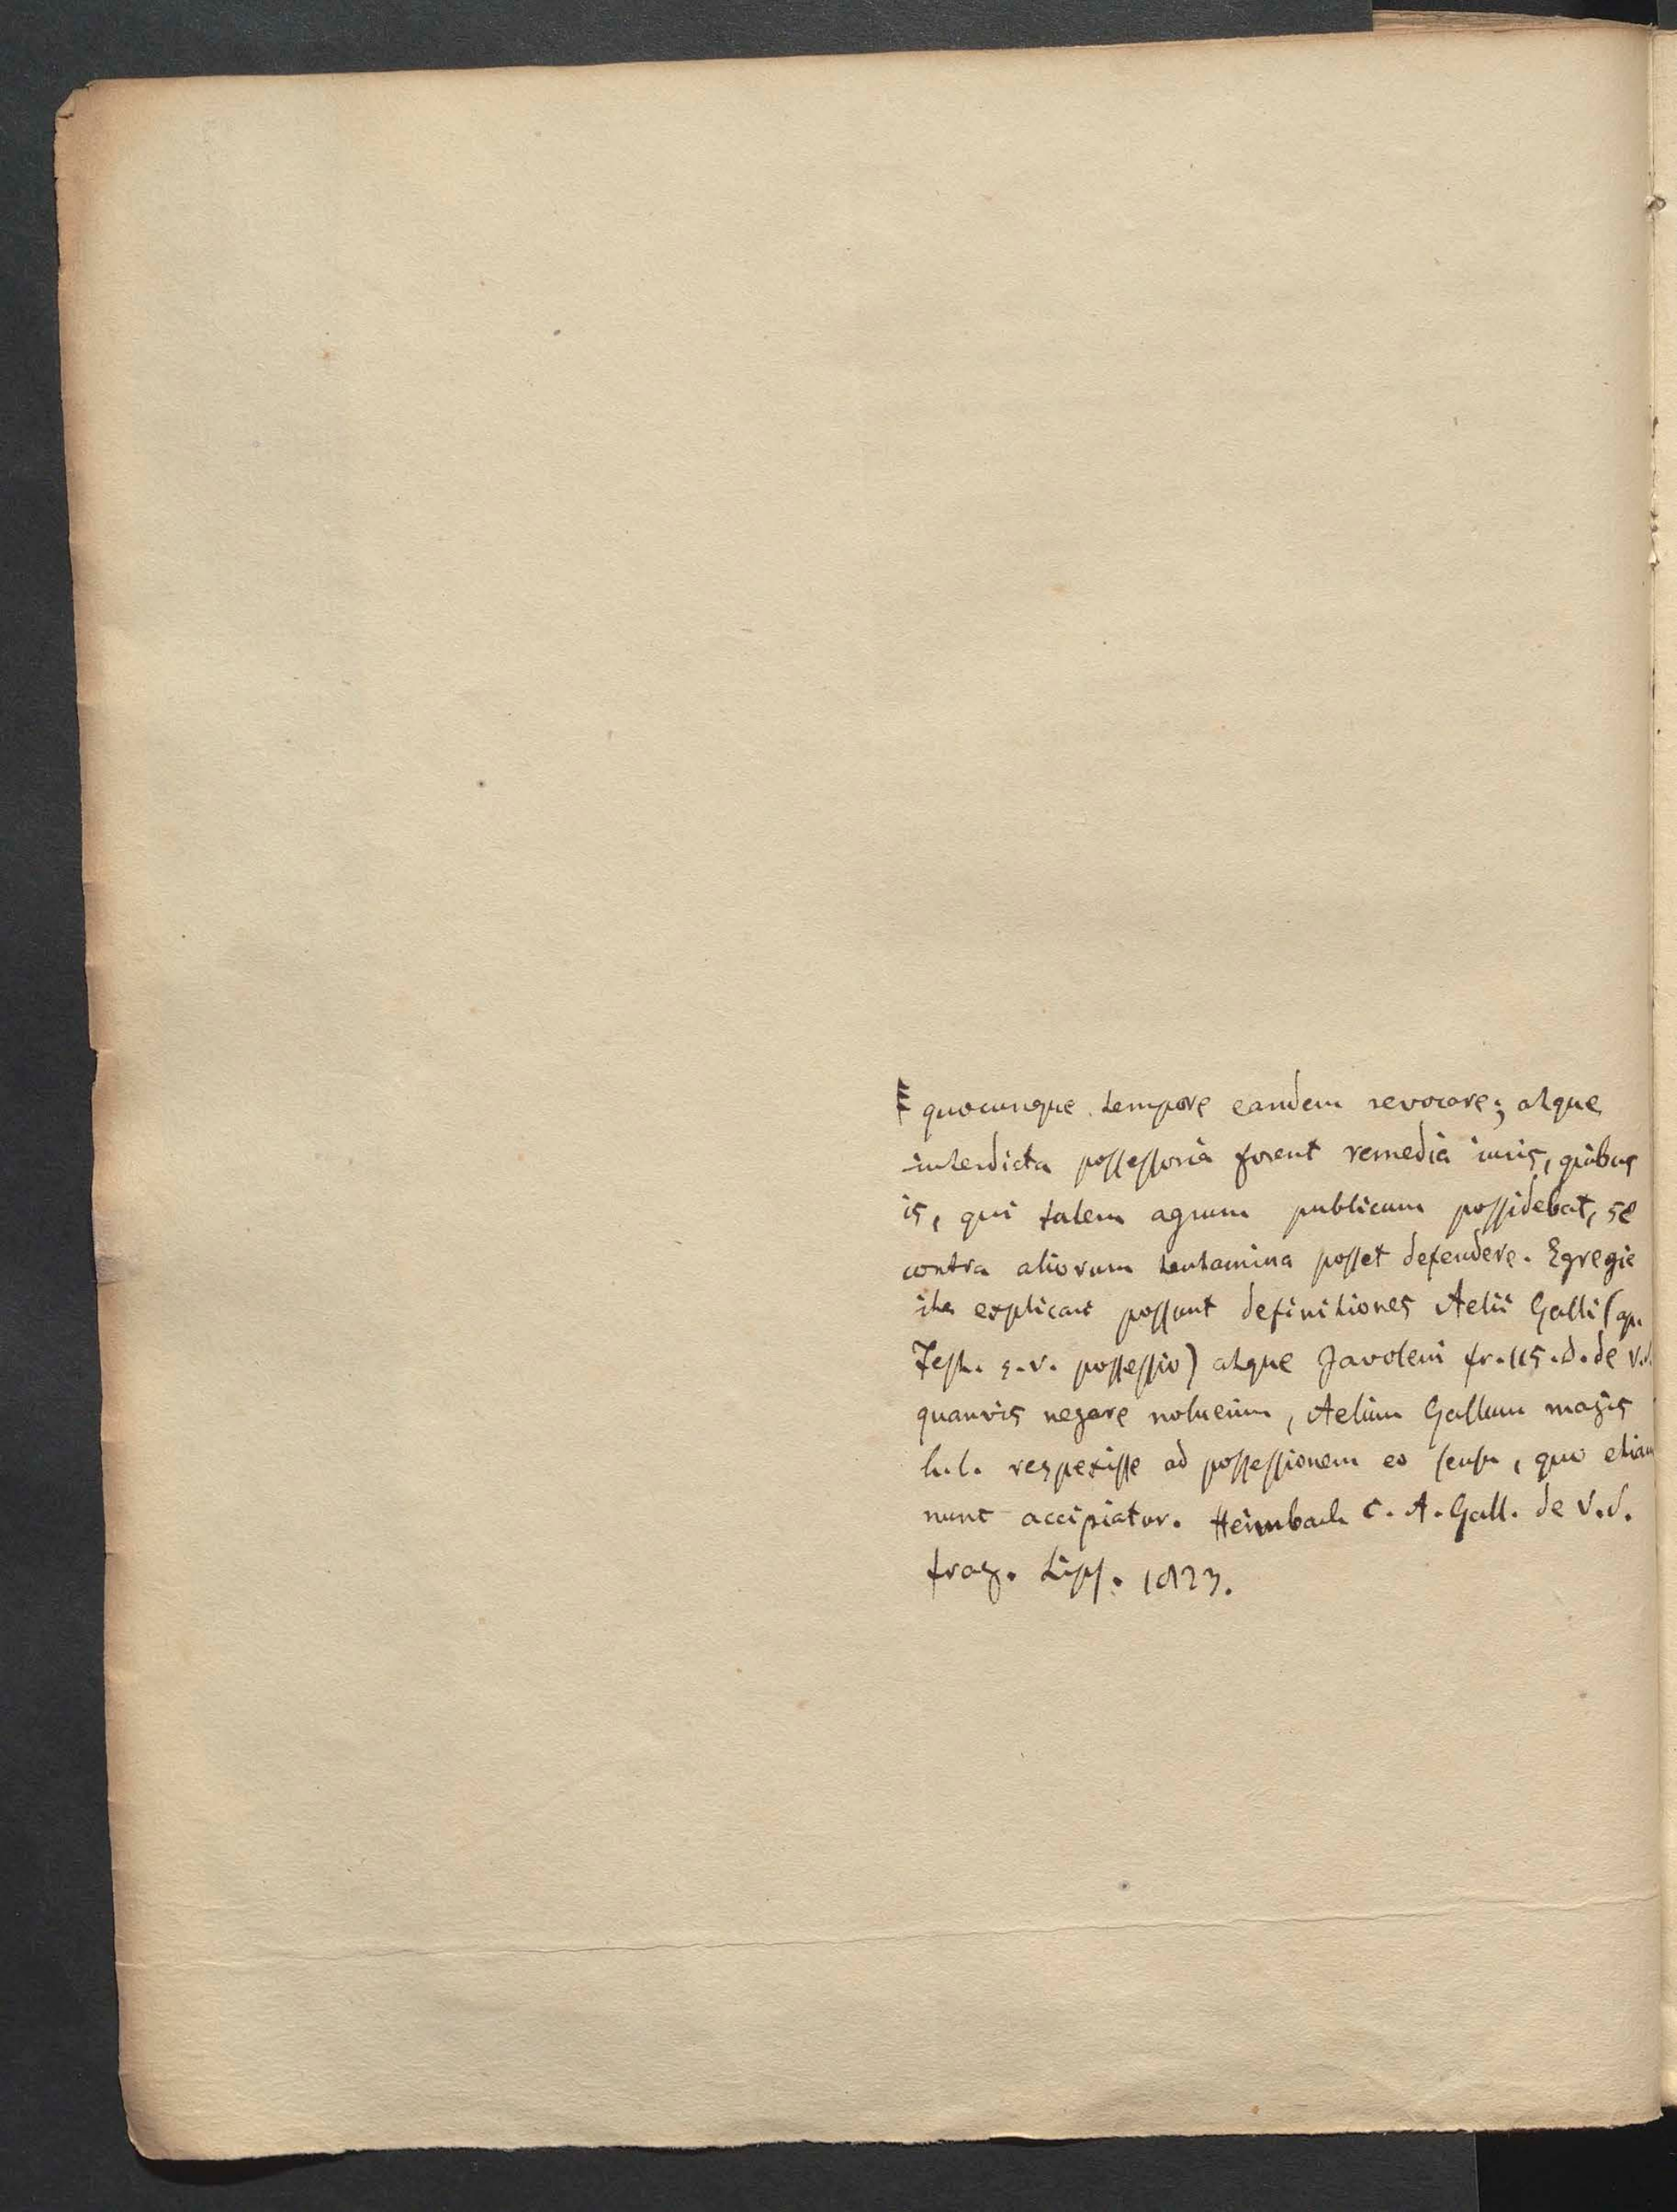 quocunque tempore eandem revocare; atque
interdicta possessoria forent remedia iuris, quibus
is, qui talem agrum publicum possidebat, se
contra aliorum tentamina posset defendere. Egregie
ita explicari possunt definitiones Aelii Galli (ap.
Fest. s.v. possessio) atque Javoleni fr. 115. D. de V.S.
quamvis negare noluerim, Aelium Gallum magis
h.l. respexisse ad possessionem eo sensu, quo etiam
nunc accipiatur. Heimbach C. A. Gall. de V.S.
frag. Lips. 1823.